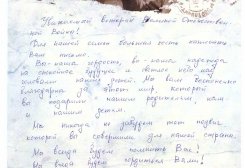 Уважаемый Ветеран Великой Отечествен-
ной Войны!
Для нашей семьи большая честь написать
Вам письмо.
Вы - наша гордость, Вы - наша надежда
на спокойное будущее и светлое небо над
головами наших детей. Мы Вам бесконечно
благодарны за этот мир, который
вы подарили нашим родителям, нам
и нашим детям.
Мы никогда не забудем тот подвиг,
который вы совершили для нашей страны.
Мы всегда будем помнить Вас!
Мы всегда будем гордиться Вами!